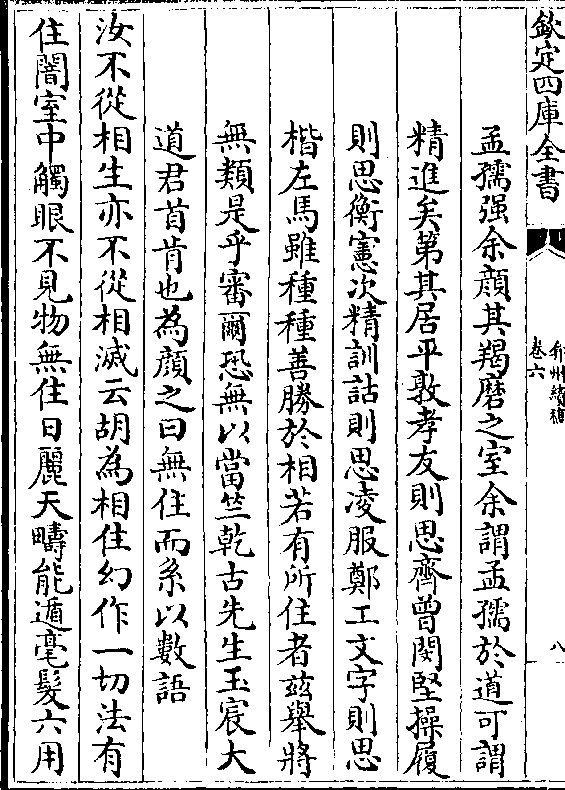 欽定四庫全書
弇州續稿
卷六
八
孟孺强余顔其羯磨之室余謂孟孺於道可謂
精進矣第其居平敦孝友則思齊曾閔堅操履
則思衡憲次精訓詁則思凌服鄭工文字則思
楷左馬雖種種善勝於相若有所住者兹舉將
無類是乎審爾恐無以當竺乾古先生玉宸大
道君首肯也為顔之曰無住而系以數語
汝不從相生亦不從相滅云胡為相住幻作一切法有
住闇室中觸眼不見物無住日麗天疇能遁毫髪六用